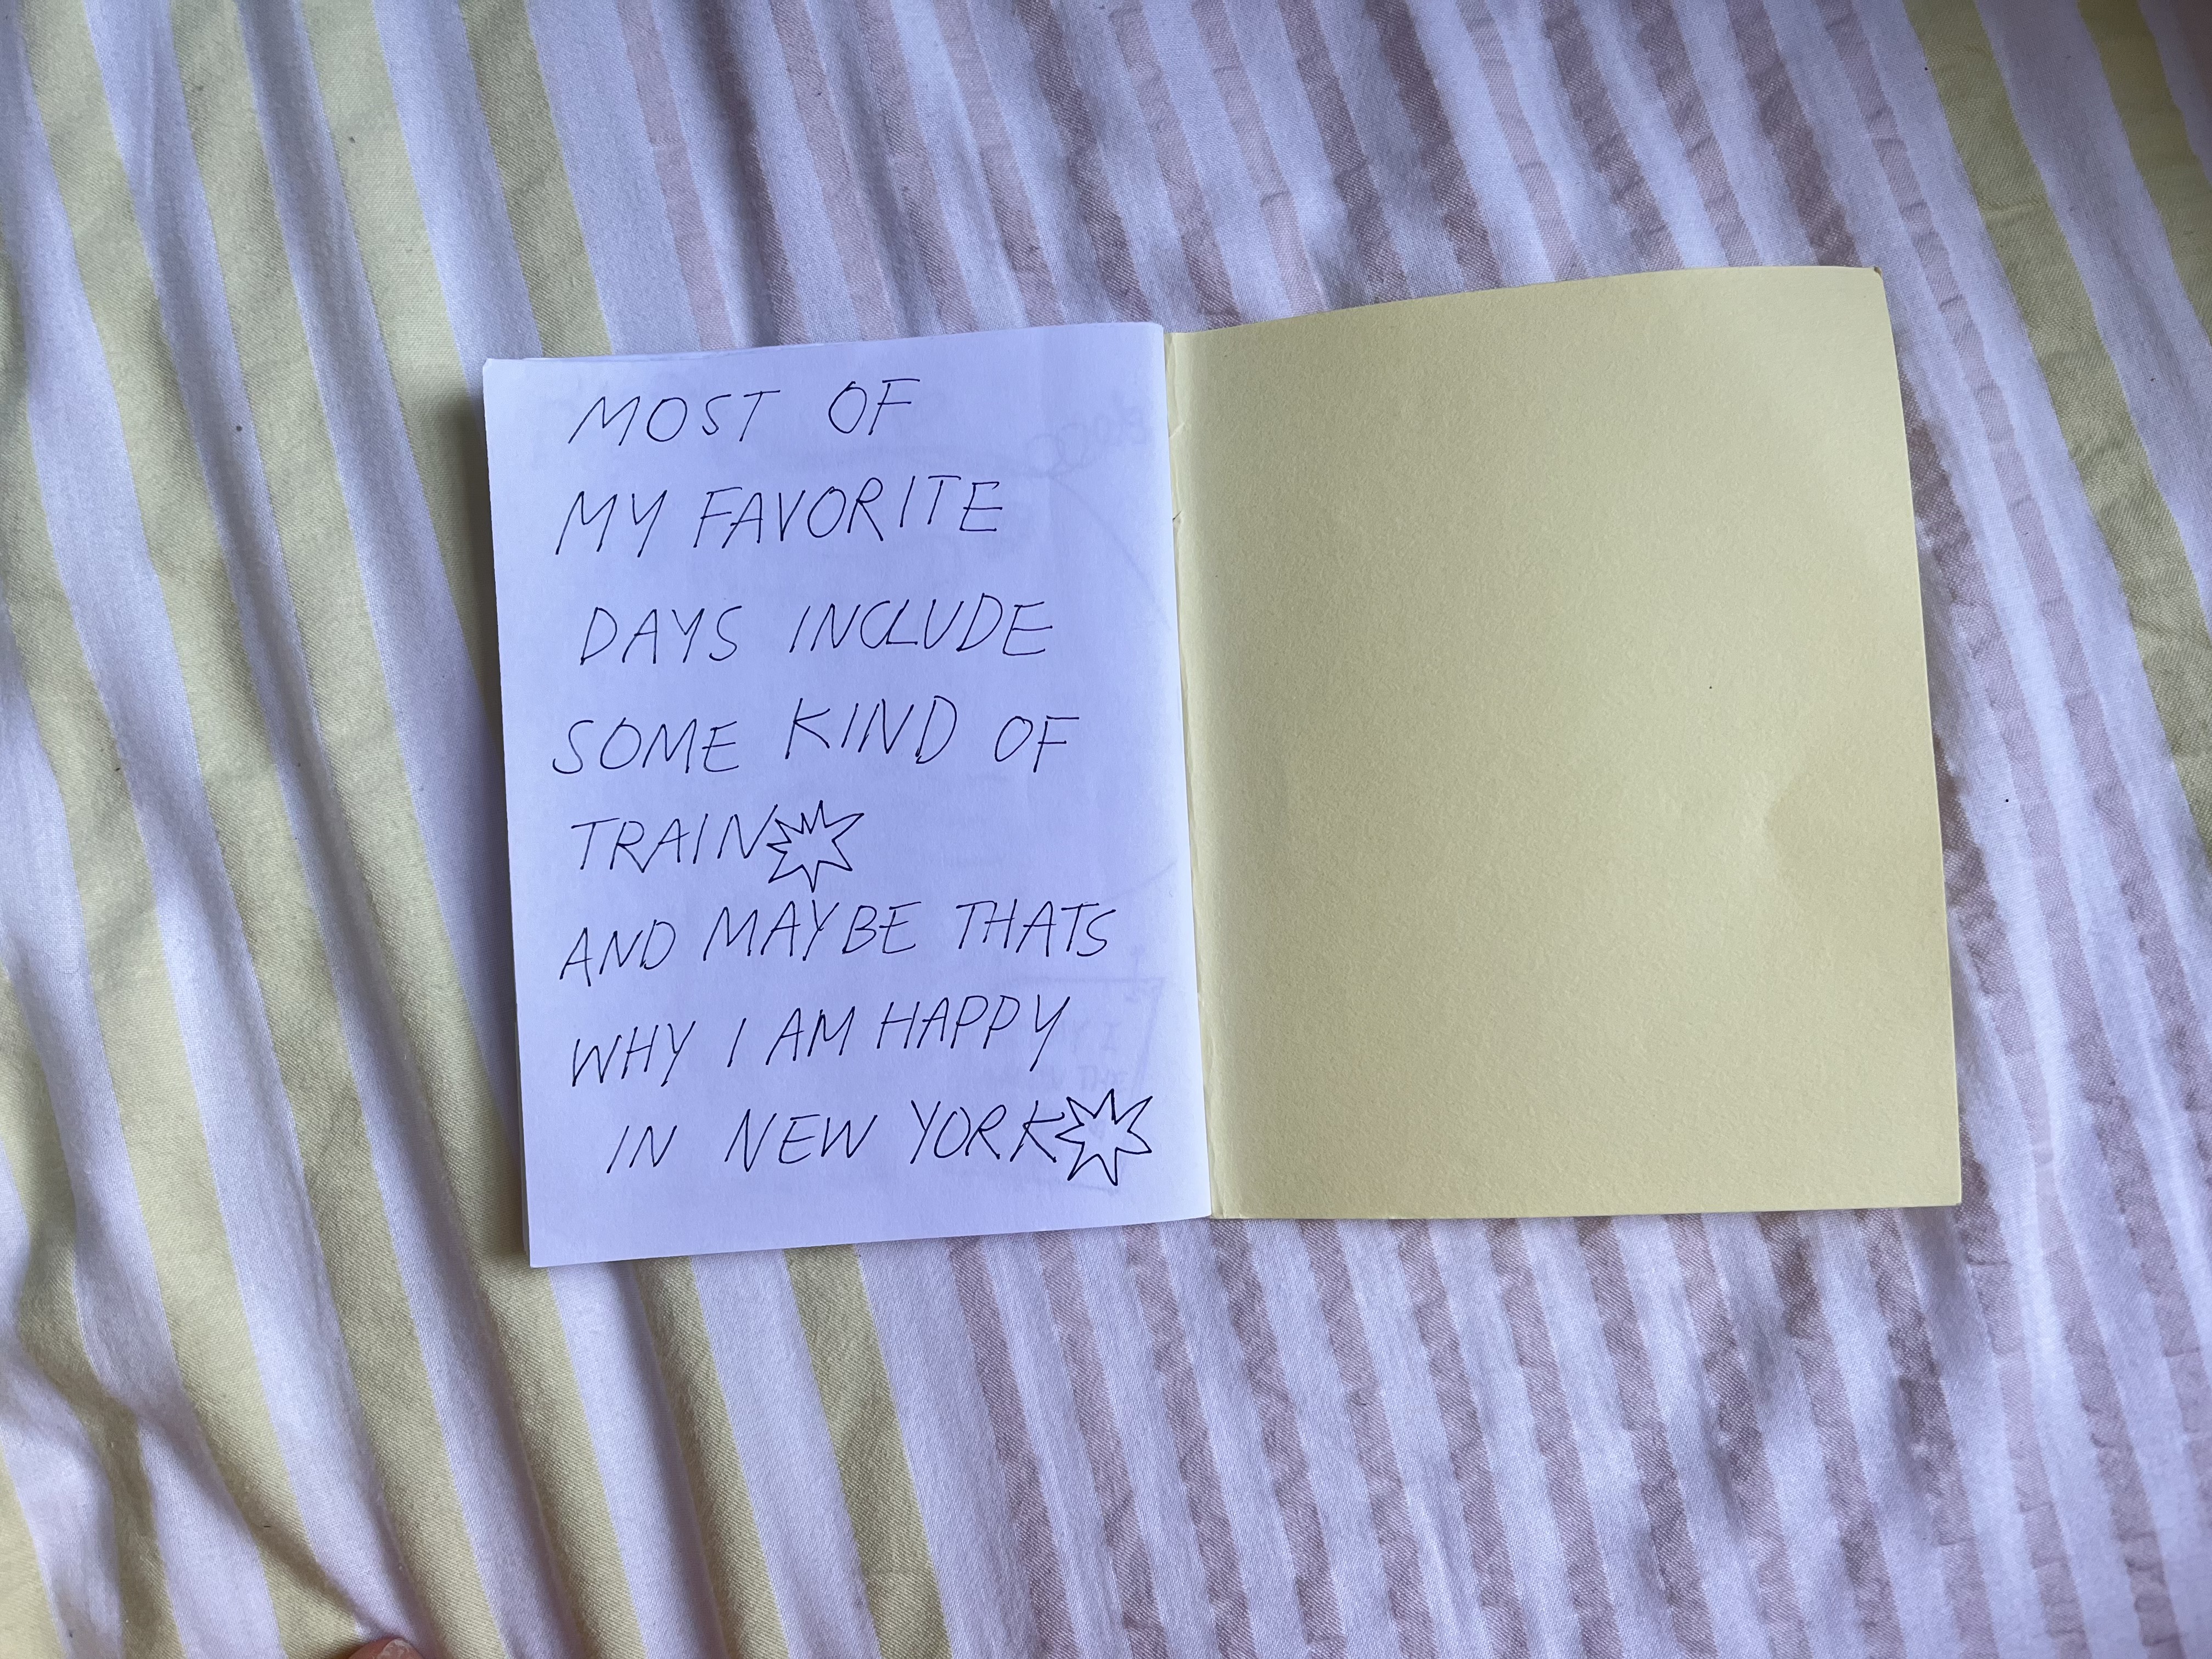 MOST OF
MY FAVORITE
DAYS INCLUDE
SOME KIND OF
TRAIN
AND MAYBE THATS
WHY I AM HAPPY
IN NEW YORK